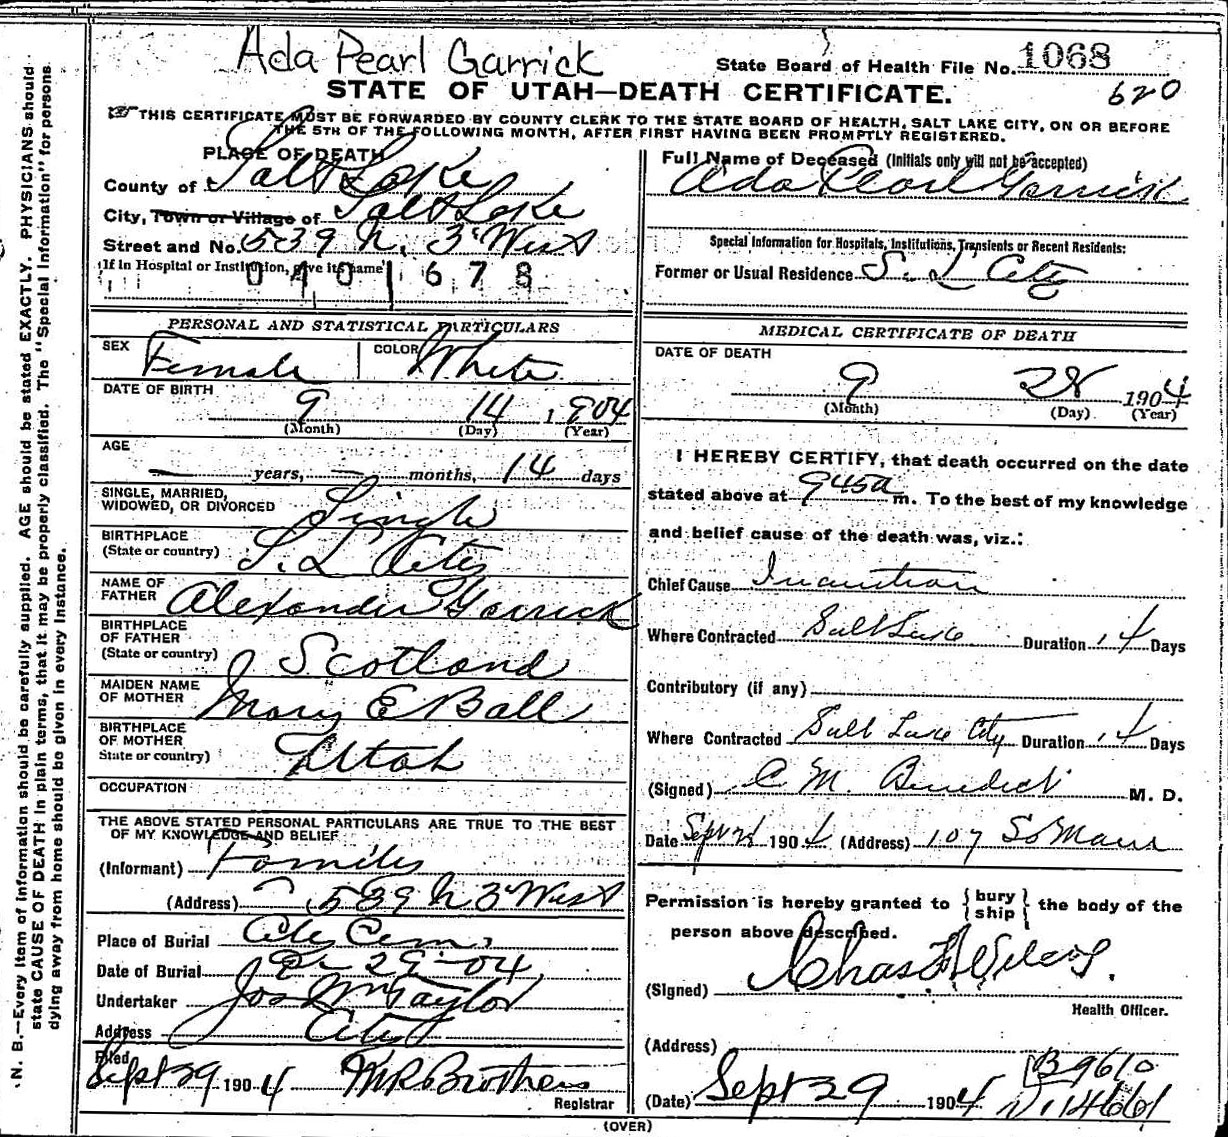 Ada Pearl Garrick
State Board of Health File No. 1068
STATE OF UTAH—DEATH CERTIFICATE.
620
THIS CERTIFICATE MUST BE FORWARDED BY COUNTY CLERK TO THE STATE BOARD OF HEALTH, SALT LAKE CITY, ON OR BEFORE
THE 5TH OF THE FOLLOWING MONTH, AFTER FIRST HAVING BEEN PROMPTLY REGISTERED.
PLACE OF DEATH
County of Salt Lake
City, Town or Village of Salt Lake
Street and No. 539 N. 3d West
(If in Hospital or Institution, give its name)
040 1678
Full Name of Deceased (Initials only will not be accepted)
Ada Pearl Garrick
Special Information for Hospitals, Institutions, Transients or Recent Residents:
Former or Usual Residence S. L City
PERSONAL AND STATISTICAL PARTICULARS
SEX Female COLOR White
DATE OF BIRTH
9 14 1904
(Month) (Day) (Year)
AGE
— years, — months, 14 days
SINGLE, MARRIED,
WIDOWED, OR DIVORCED Single
BIRTHPLACE
(State or country) S. L City
NAME OF
FATHER Alexander Garrick
BIRTHPLACE
OF FATHER
(State or country) Scotland
MAIDEN NAME
OF MOTHER Mary E Ball
BIRTHPLACE
OF MOTHER
State or country) Utah
OCCUPATION
THE ABOVE STATED PERSONAL PARTICULARS ARE TRUE TO THE BEST
OF MY KNOWLEDGE AND BELIEF
(Informant) Family
(Address) 539 N 3d West
Place of Burial City Cem.
Date of Burial 29-04
Undertaker Jos Wm Taylor
Address City
Filed
Sept 29 1904 Brothers
Registrar
MEDICAL CERTIFICATE OF DEATH
DATE OF DEATH
9 28 1904
(Month) (Day) (Year)
I HEREBY CERTIFY, that death occurred on the date
stated above at 945a m. To the best of my knowledge
and belief cause of the death was, viz.:
Chief Cause Inanition
Where Contracted Salt Lake Duration 14 Days
Contributory (if any)
Where Contracted Salt Lake City Duration 14 Days
(Signed) C. M. Benedict M. D.
Date Sept 28 1904 (Address) 107 So Main
Permission is hereby granted to { bury ship } the body of the
person above described.
(Signed) Chas
Health Officer.
(Address)
B 9610
V. 14661
(Date) Sept 29 1904
(OVER)
N. B.—Every item of information should be carefully supplied. AGE should be stated EXACTLY. PHYSICIANS should
state CAUSE OF DEATH in plain terms, that it may be properly classified. The "Special Information" for persons
dying away from home should be given in every instance.